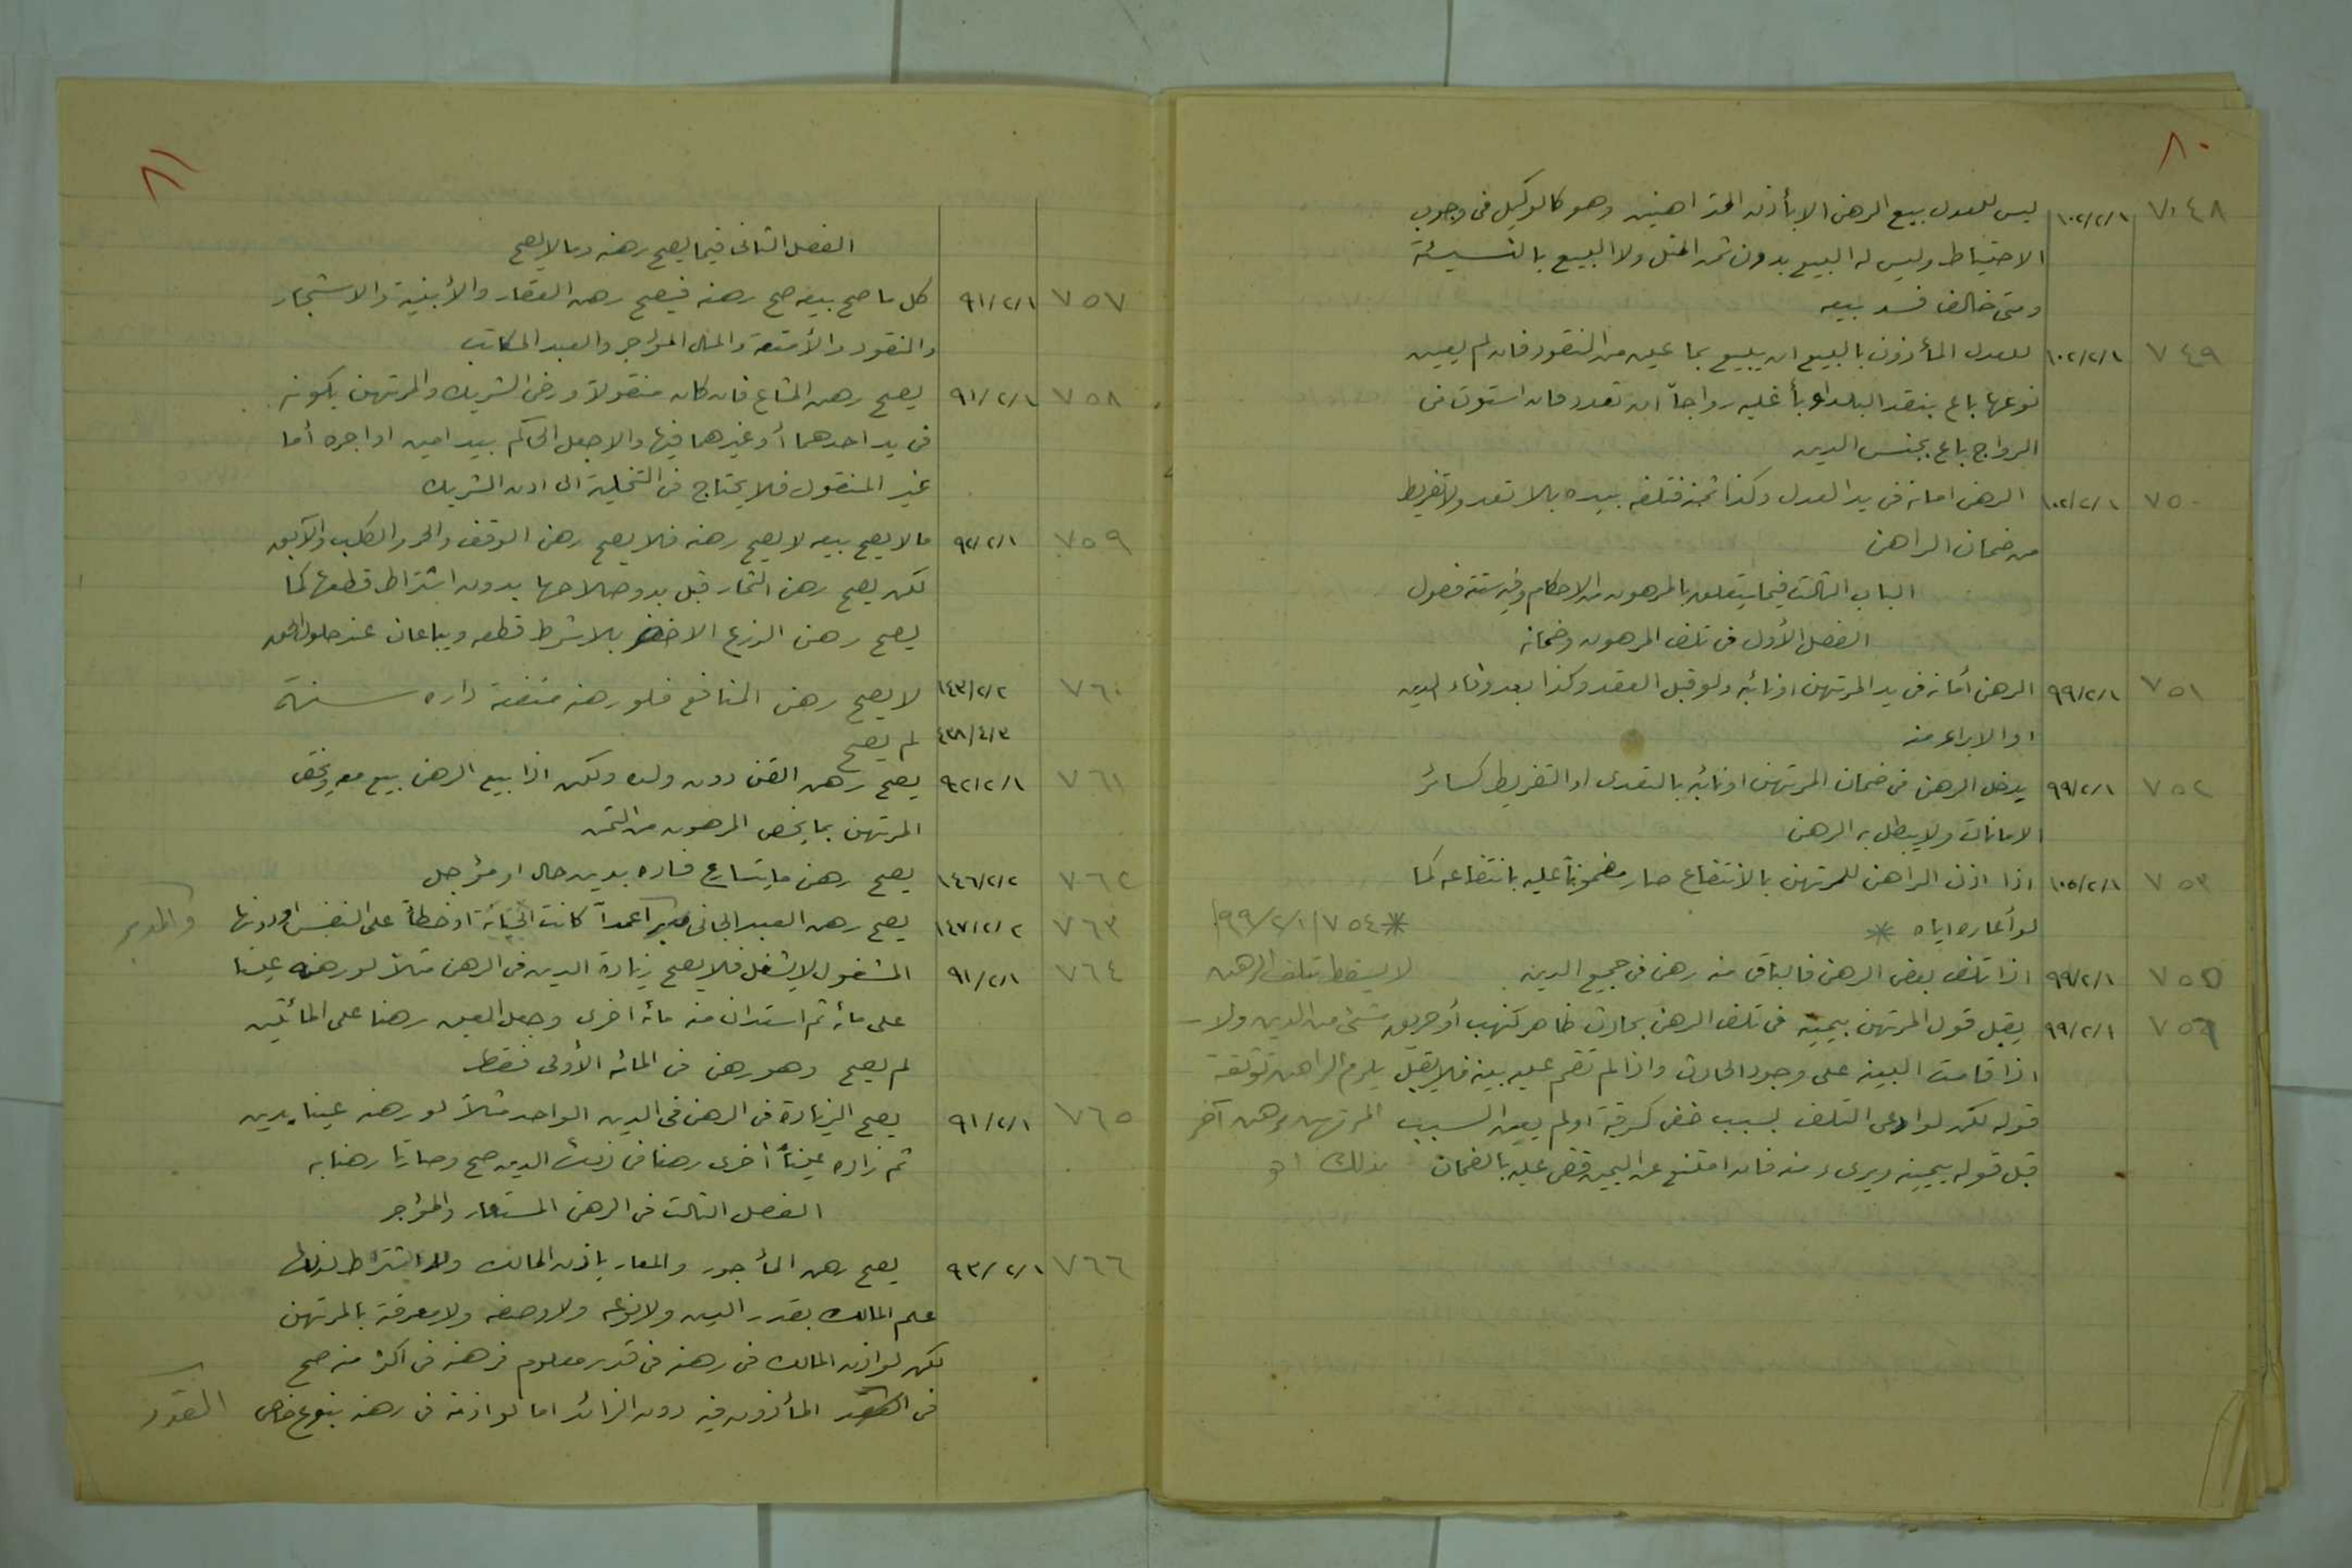 ٨٠
٧٤٨ ١٠٢/٢/١ ليس للعدل بيع الرهن الا بأذن المتراهنين وهو كالوكيل في وجوب
الاحتياط وليس له البيع بدون ثمن المثل ولا البيع بالنسيئة
ومتى خالف فسد بيعه
٧٤٩ ١٠٢/٢/١ للعدل المأذون بالبيع ان يبيع بما عين من النقود فان لم يعين
نوعها باع بنقد البلد او بأغلبه رواجاً ان تعدد فان استوت في
الرواج باع بجنس الدين
٧٥٠ ١٠٢/٢/١ الرهن امانة في يد العدل وكذا ثمنه فتلفه بيده بلا تعد ولا تفريط
من ضمان الراهن
الباب الثالث فيما يتعلق بالمرهون من الاحكام وفيه ستة فصول
الفصل الأول في تلف المرهون وضمانه
٧٥١ ٩٩/٢/١ الرهن أمانة في يد المرتهن او نائبه ولو قبل العقد وكذا بعد وفاء الدين
او الابراء منه
٧٥٢ ٩٩/٢/١ يدخل الرهن في ضمان المرتهن او نائبه بالتعدى او التفريط كسائر
الامانات ولا يبطل به الرهن
٧٥٣ ١٠٥/٢/١ اذا اذن الراهن للمرتهن بالانتفاع صار مضموناً عليه بانتفاعه كما
لو أعاره اياه *
* ٧٥٤ / ٩٩/٢/١
لا يسقط بتلف الرهن
شئ من الدين ولا
يلزم الراهن توثقة
المرتهن برهن آخر
بذلك اهـ
٧٥٥ ٩٩/٢/١ اذا تلف بعض الرهن فالباقي منه رهن في جميع الدين
٧٥٦ ٩٩/٢/١ يقبل قول المرتهن بيمينه في تلف الرهن بحادث ظاهر كنهب أو حريق
اذا قامت البينة على وجود الحادث واذا لم تقم عليه بينة فلا يقبل
قوله لكن لو ادعى التلف بسبب خفي كسرقة او لم يعين السبب
قبل قوله بيمينه ويبرىء منه فان امتنع عن اليمين قضى عليه بالضمان
٨١
الفصل الثاني فيما يصح رهنه وما لا يصح
٧٥٧ ٩١/٢/١ كل ما صح بيعه صح رهنه فيصح رهن العقار والأبنية والاشجار
والنقود والأمتعة والمال المؤاجر والعبد المكاتب
٧٥٨ ٩١/٢/١ يصح رهن المشاع فان كان منقولاً ورضي الشريك والمرتهن بكونه
في يد احدهما أو غيرهما فبها والا جعل الحاكم بيد امين او اجره أما
غير المنقول فلا يحتاج في التخلية الى اذن الشريك
٧٥٩ ٩٢/٢/١ ما لا يصح بيعه لا يصح رهنه فلا يصح رهن الوقف والحر والكلب والآبق
لكن يصح رهن الثمار قبل بدو صلاحها بدون اشتراط قطعها كما
يصح رهن الزرع الاخضر بلا شرط قطعه ويباعان عند حلول الحق
٧٦٠ ١٤٣/٢/٢ لا يصح رهن المنافع فلو رهنه منفعة داره سنة
٤٣٨/٤/٣ لم يصح
٧٦١ ٩٢/٢/١ يصح رهن القن دون ولده ولكن اذا بيع الرهن بيع معه ويختص
المرتهن بما يخص المرهون من الثمن
٧٦٢ ١٤٦/٢/٢ يصح رهن ما يتسارع فساده بدين حال او مؤجل
٧٦٣ ١٤٧/٢/٢ يصح رهن العبد الجاني والمدبر عمداً كانت الجناية او خطأً على النفس او دونها
٧٦٤ ٩١/٢/١ المشغول لا يشغل فلا يصح زيادة الدين في الرهن مثلاً لو رهنه عيناً
على مائة ثم استدان منه مائة اخرى وجعل العين رهنا على المائتين
لم يصح وهو رهن في المائة الأولى فقط
٧٦٥ ٩١/٢/١ يصح الزيادة في الرهن في الدين الواحد مثلاً لو رهنه عينا بدين
ثم زاده عيناً أخرى رهنا في ذلك الدين صح وصارتا رهنا به
الفصل الثالث في الرهن المستعار والمؤاجر
٧٦٦ ٩٣/٢/١ يصح رهن المأجور والمعار باذن المالك ولا اشتراط لذلك
علم المالك بقدر الدين ولا نوعه ولا وصفه ولا معرفة بالمرتهن
لكن لو اذن المالك في رهنه في قدر معلوم فرهنه في اكثر منه صح
في القدر المأذون فيه دون الزائد اما لو اذنه في رهنه بنوع خاص النقود